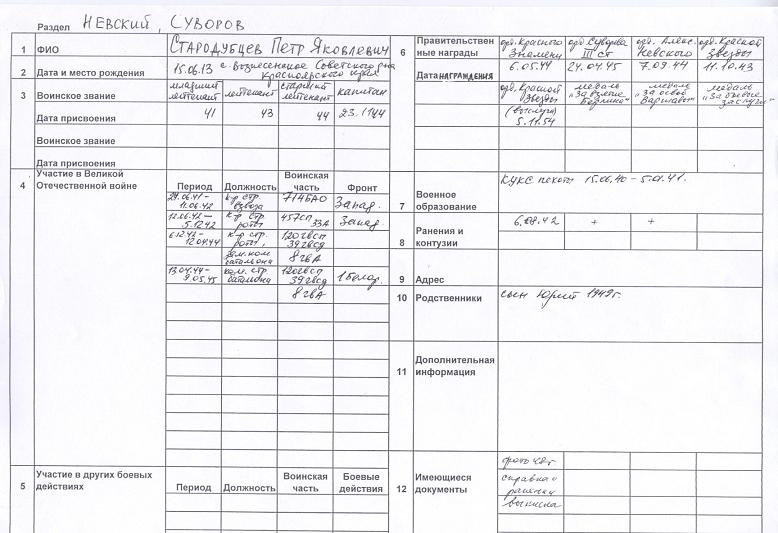 Раздел НЕВСКИЙ, СУВОРОВ
1 ФИО СТАРОДУБЦЕВ ПЕТР ЯКОВЛЕВИЧ
2 Дата и место рождения 15.06.13 с. Вознесенское Советского р-на
Красноярского края
3 Воинское звание младший лейтенант лейтенант старший лейтенант капитан
Дата присвоения 41 43 44 23.11.44
Воинское звание
Дата присвоения
4 Участие в Великой Отечественной войне
Период Должность Воинская часть Фронт
11.06.42 к-р стр. взвода 714БАО Запад.
12.06.42 – 5.12.42 к-р стр. роты 457сп 33А Запад
6.12.42 – 12.04.44 к-р стр. роты, зам.ком батальона 120гвсп 39гвсд 8гвА
13.04.44 – 9.05.45 ком. стр. батальона 120гвсп 39гвсд 8гвА 1Белор.
5 Участие в других боевых действиях
Период Должность Воинская часть Боевые действия
6 Правительственные награды орд. Красного Знамени орд. Суворова III ст орд. Алекс. Невского орд. Красной Звезды
Дата НАГРАЖДЕНИЯ 6.05.44 24.04.45 7.09.44 11.10.43
орд. Красной Звезды (выслуга) 5.11.54 медаль „За взятие Берлина" медаль „За освоб Варшавы" медаль „За боевые заслуги"
7 Военное образование КУКС пехоты 15.06.40 – 5.01.41.
8 Ранения и контузии 6.08.42 + +
9 Адрес
10 Родственники сын Юрий 1949г.
11 Дополнительная информация
12 Имеющиеся документы фото
справка о
ранении
выписка